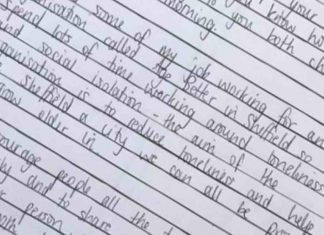 your
you know h
morning. to you both ch
some of my job working for an
anisation called Better in Sheffield so
spend lots of time working around loneliness
nd social isolation - the aim of the
ganisation is to reduce loneliness and help
Sheffield a city we can all be pr
row older in
ourage people all the t
and to share
person